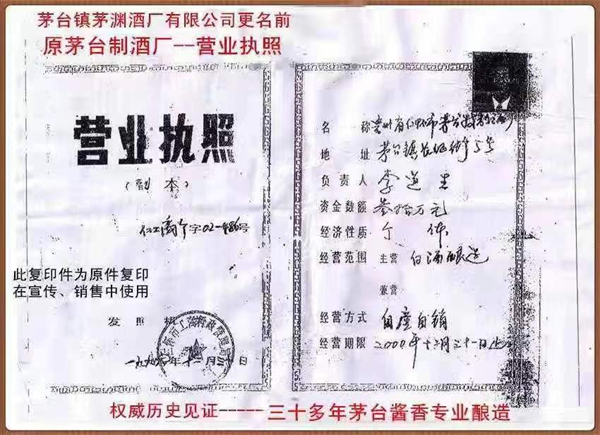 茅台镇茅渊酒厂有限公司更名前
原茅台制酒厂--营业执照
营业执照
(副本)
字02-486号
此复印件为原件复印
在宣传、销售中使用
发照
名称 贵州省仁怀市茅台
地址 茅台镇
负责人 李
资金数额 叁拾万元
经济性质 个体
经营范围 主营 白酒酿造
兼营
经营方式 自产自销
经营期限 2000年十二月三十一日止
权威历史见证-----三十多年茅台酱香专业酿造